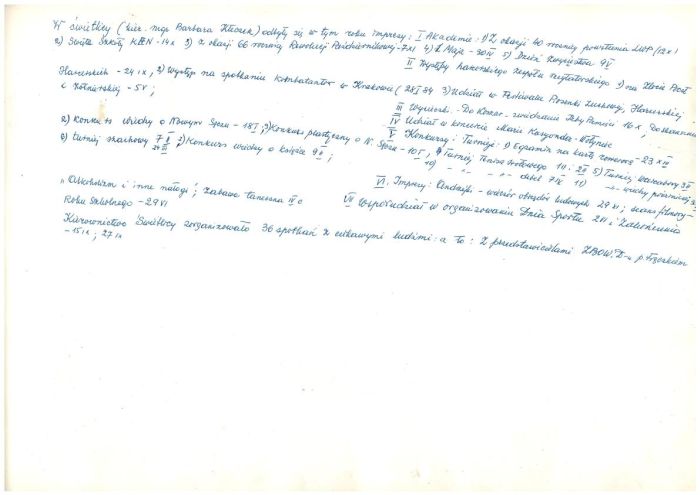 W świetlicy (kier. mgr Barbara Kłosek) odbyły się w tym roku imprezy: I Akademie: 1) Z okazji 40 rocznicy powstania LWP (12 X)
2) Święto Szkoły KEN - 14 X 3) Z okazji 66 rocznicy Rewolucji Październikowej - 7 XI 4) 1 Maja - 30 IV 5) Dzień Zwycięstwa 9 V
II Występy harcerskiego zespołu recytatorskiego 1) na Zlocie
Harcerskich - 24 IX, 2) Występ na spotkaniu kombatantów w Krakowie (28 I 84 3) Udział w Festiwalu Piosenki Zuchowej, Harcerskiej
i Żołnierskiej - 5 V;
III Wycieczki - Do - zwiedzanie Izby Pamięci 16 X,
IV Udział w konkursie Maria
V Konkursy i Turnieje: 1) Egzamin na kartę rowerową - 23 XII
2) Konkurs wiedzy o Nowym Sączu - 18 I, 3) Konkurs plastyczny o N. Sączu - 10 I, 4) Turniej Tenisa stołowego 14. 2 II 5) Turniej warcabowy 3 II
6) turniej szachowy 7 II, 7) Konkurs wiedzy o książce 9 II; 10) debel 7 IV 11) wiedzy
VI. Imprezy: Andrzejki - wieczór obrzędów ludowych 29 XI; seans filmowy -
"Alkoholizm i inne nałogi"; zabawa taneczna
VII Współudział w organizowaniu Dnia Sportu 2 VI i Zakończenia
Roku Szkolnego - 29 VI
Kierownictwo Świetlicy zorganizowało 36 spotkań z ciekawymi ludźmi: a to: Z przedstawicielami ZBOWiD-u
- 15 IX; 27 IX